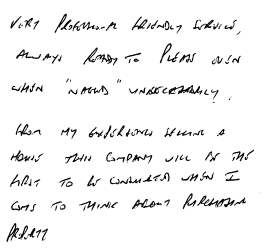 VERY PROFESSIONAL FRIENDLY SERVICE,
ALWAYS READY TO PLEASE EVEN
WHEN "NAGGED" UNNECESSARILY.
FROM MY EXPERIENCE SELLING A
HOUSE THIS COMPANY WILL BE THE
FIRST TO BE CONSIDERED WHEN I
COME TO THINK ABOUT PURCHASING
PROPERTY